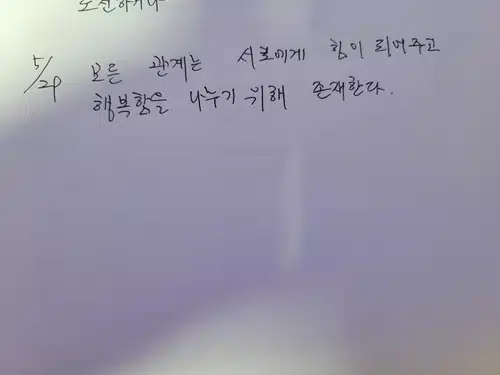 도전하거나
5/29 모든 관계는 서로에게 힘이 되어주고
행복함을 나누기 위해 존재한다.